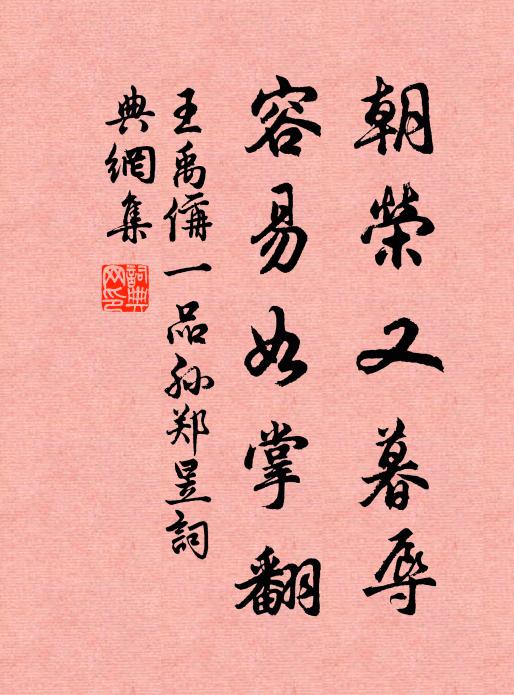 朝榮又暮辱
容易如掌翻
王禹偁一品孙郑昱詞
典網集
詞典网印